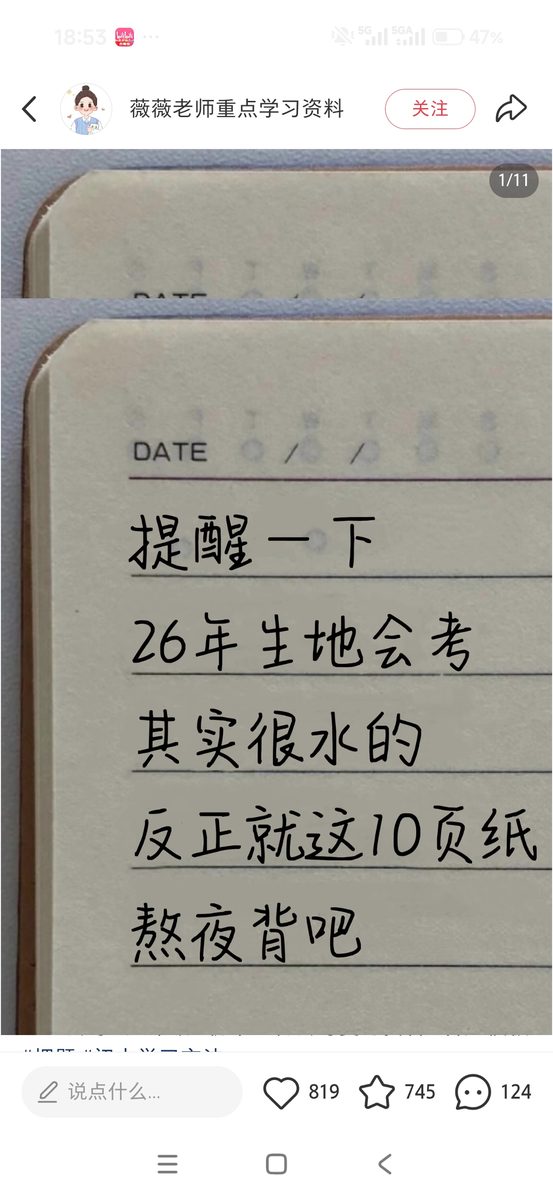 18:53
5G
5GA
47%
薇薇老师重点学习资料
关注
1/11
DATE
DATE / /
提醒一下
26年生地会考
其实很水的
反正就这10页纸
熬夜背吧
说点什么...
819
745
124